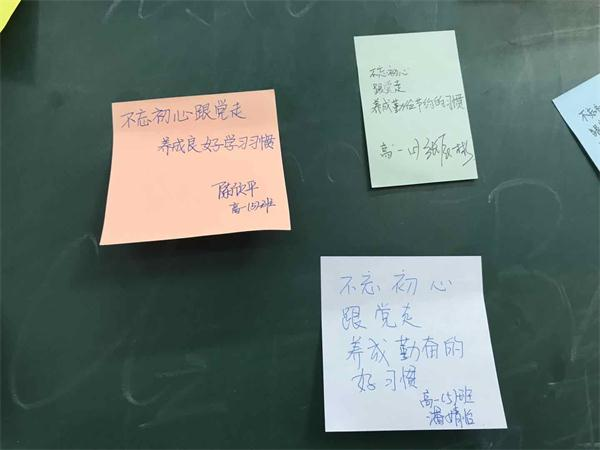 不忘初心跟党走
养成良好学习习惯
欣平
高一(5)班
不忘初心
跟党走
养成勤俭节约的习惯
高一(5)
不忘初心
跟党走
养成勤奋的
好习惯
高一(5)班
潘婧怡
不忘
跟